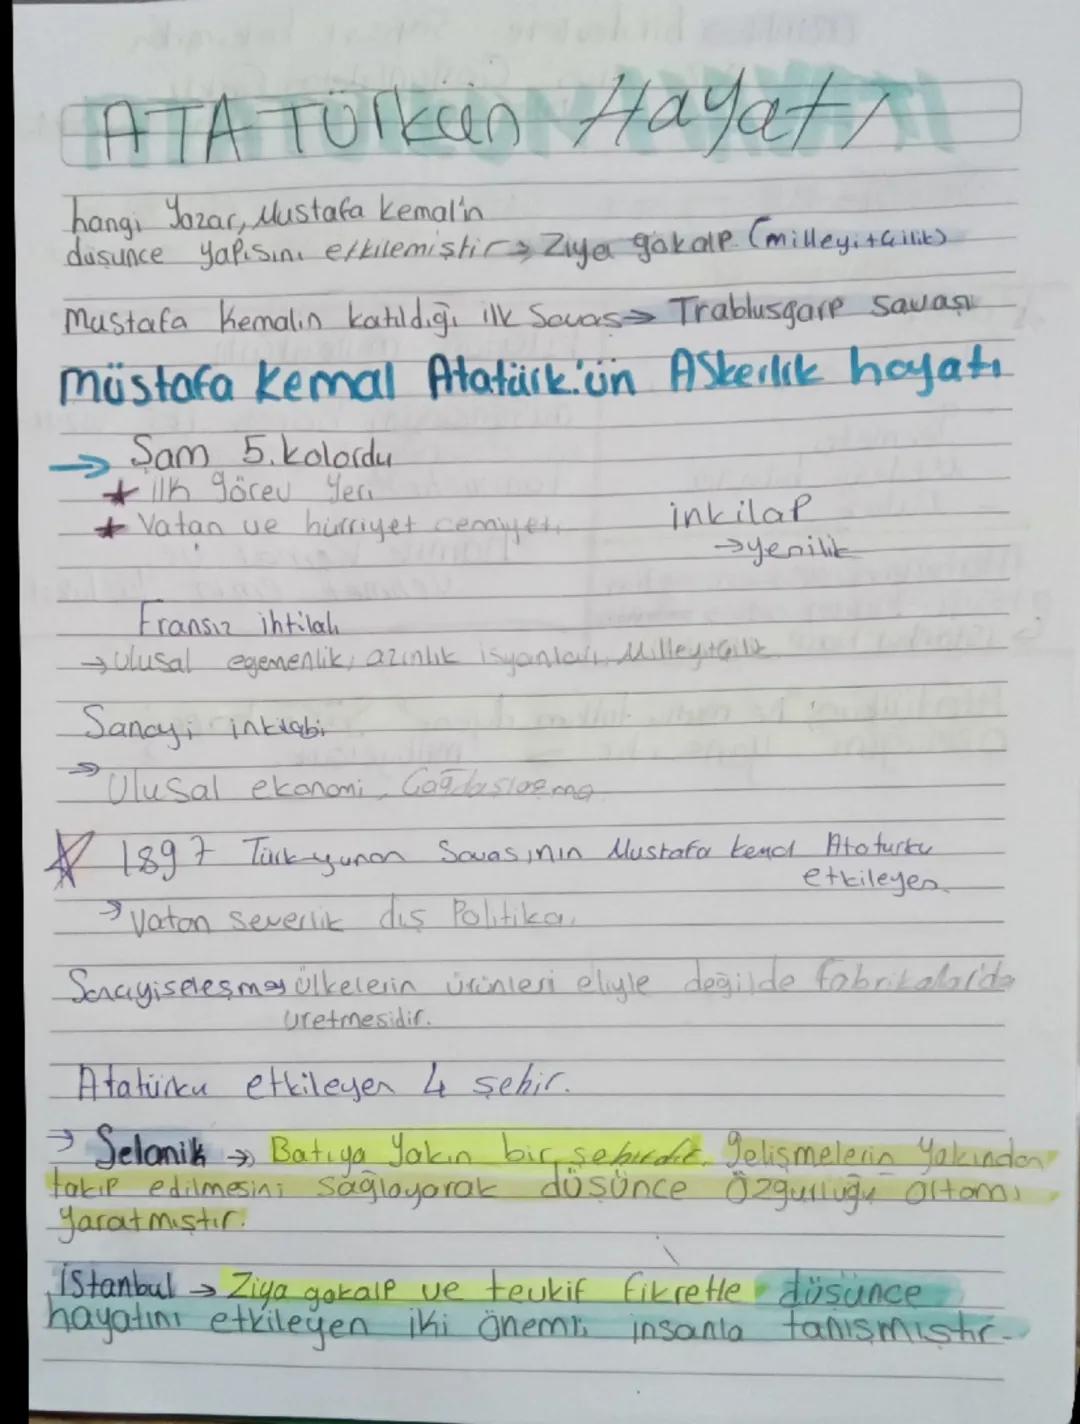 ATATÜrkün Hayatı
hangi Yazar, Mustafa Kemal'in
düşünce yapısını etkilemiştir → Ziya gökalp (milleyitçilik)
Mustafa Kemalin katıldığı ilk Savaş → Trablusgarp savaşı
Müstafa Kemal Atatürk'ün ASkerlik hayatı
→ Şam 5. kolordu
★ ilk görev Yeri
★ Vatan ve hürriyet cemiyeti
inkilap
→ yenilik
Fransız ihtilalı
→ Ulusal egemenlik, azınlık isyanları, Milleyitçilik
Sanayi inkılabı
→ Ulusal ekonomi, Çağdaslaşma
★ 1897 Türk-yunan Savasının Mustafa kemal Atatürkü
etkileyen
→ Vatan severlik dış Politika.
Sanayiseleşme → ülkelerin ürünleri eliyle değilde fabrikalar'da
üretmesidir.
Atatürkü etkileyen 4 şehir.
→ Selanik → Batıya Yakın bir şehirdir. gelişmelerin Yakından
takip edilmesini sağlayarak düşünce özgürlüğü ortamı
Yaratmıştır.
istanbul → Ziya gökalp ve tevkif fikretle düşünce
hayatını etkileyen iki önemli insanla tanışmıştır.